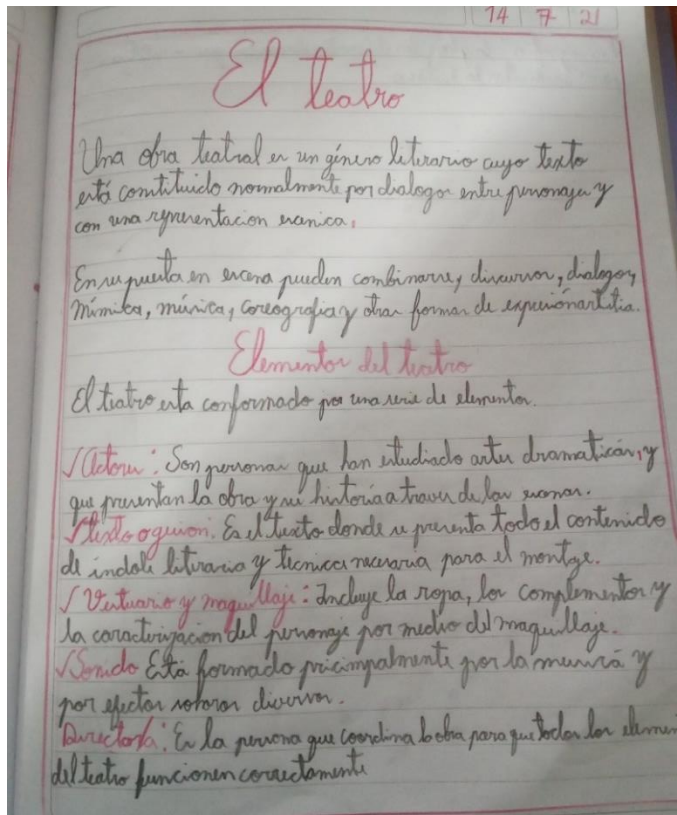 14 7 21
El teatro
Una obra teatral es un género literario cuyo texto
está constituido normalmente por dialogos entre personajes y
con una representacion escanica.
En su puesta en escena pueden combinarse, discursos, dialogos,
mímica, música, coreografia y otras formas de expresión artistia.
Elementos del teatro
El teatro esta conformado por una serie de elementos.
√Actores: Son personas que han estudiado artes dramaticas, y
que presentan la obra y su historia a traves de las esenas.
√Texto o guion. Es el texto donde se presenta todo el contenido
de indole literario y tecnica necesaria para el montaje.
√Vestuario y maquillaje: Incluye la ropa, los complementos y
la caracterizacion del personaje por medio del maquillaje.
√Sonido Está formado principalmente por la musica y
por efectos sonoros diversos.
Director/a: Es la persona que coordina la obra para que todos los elemen
del teatro funcionen correctamente